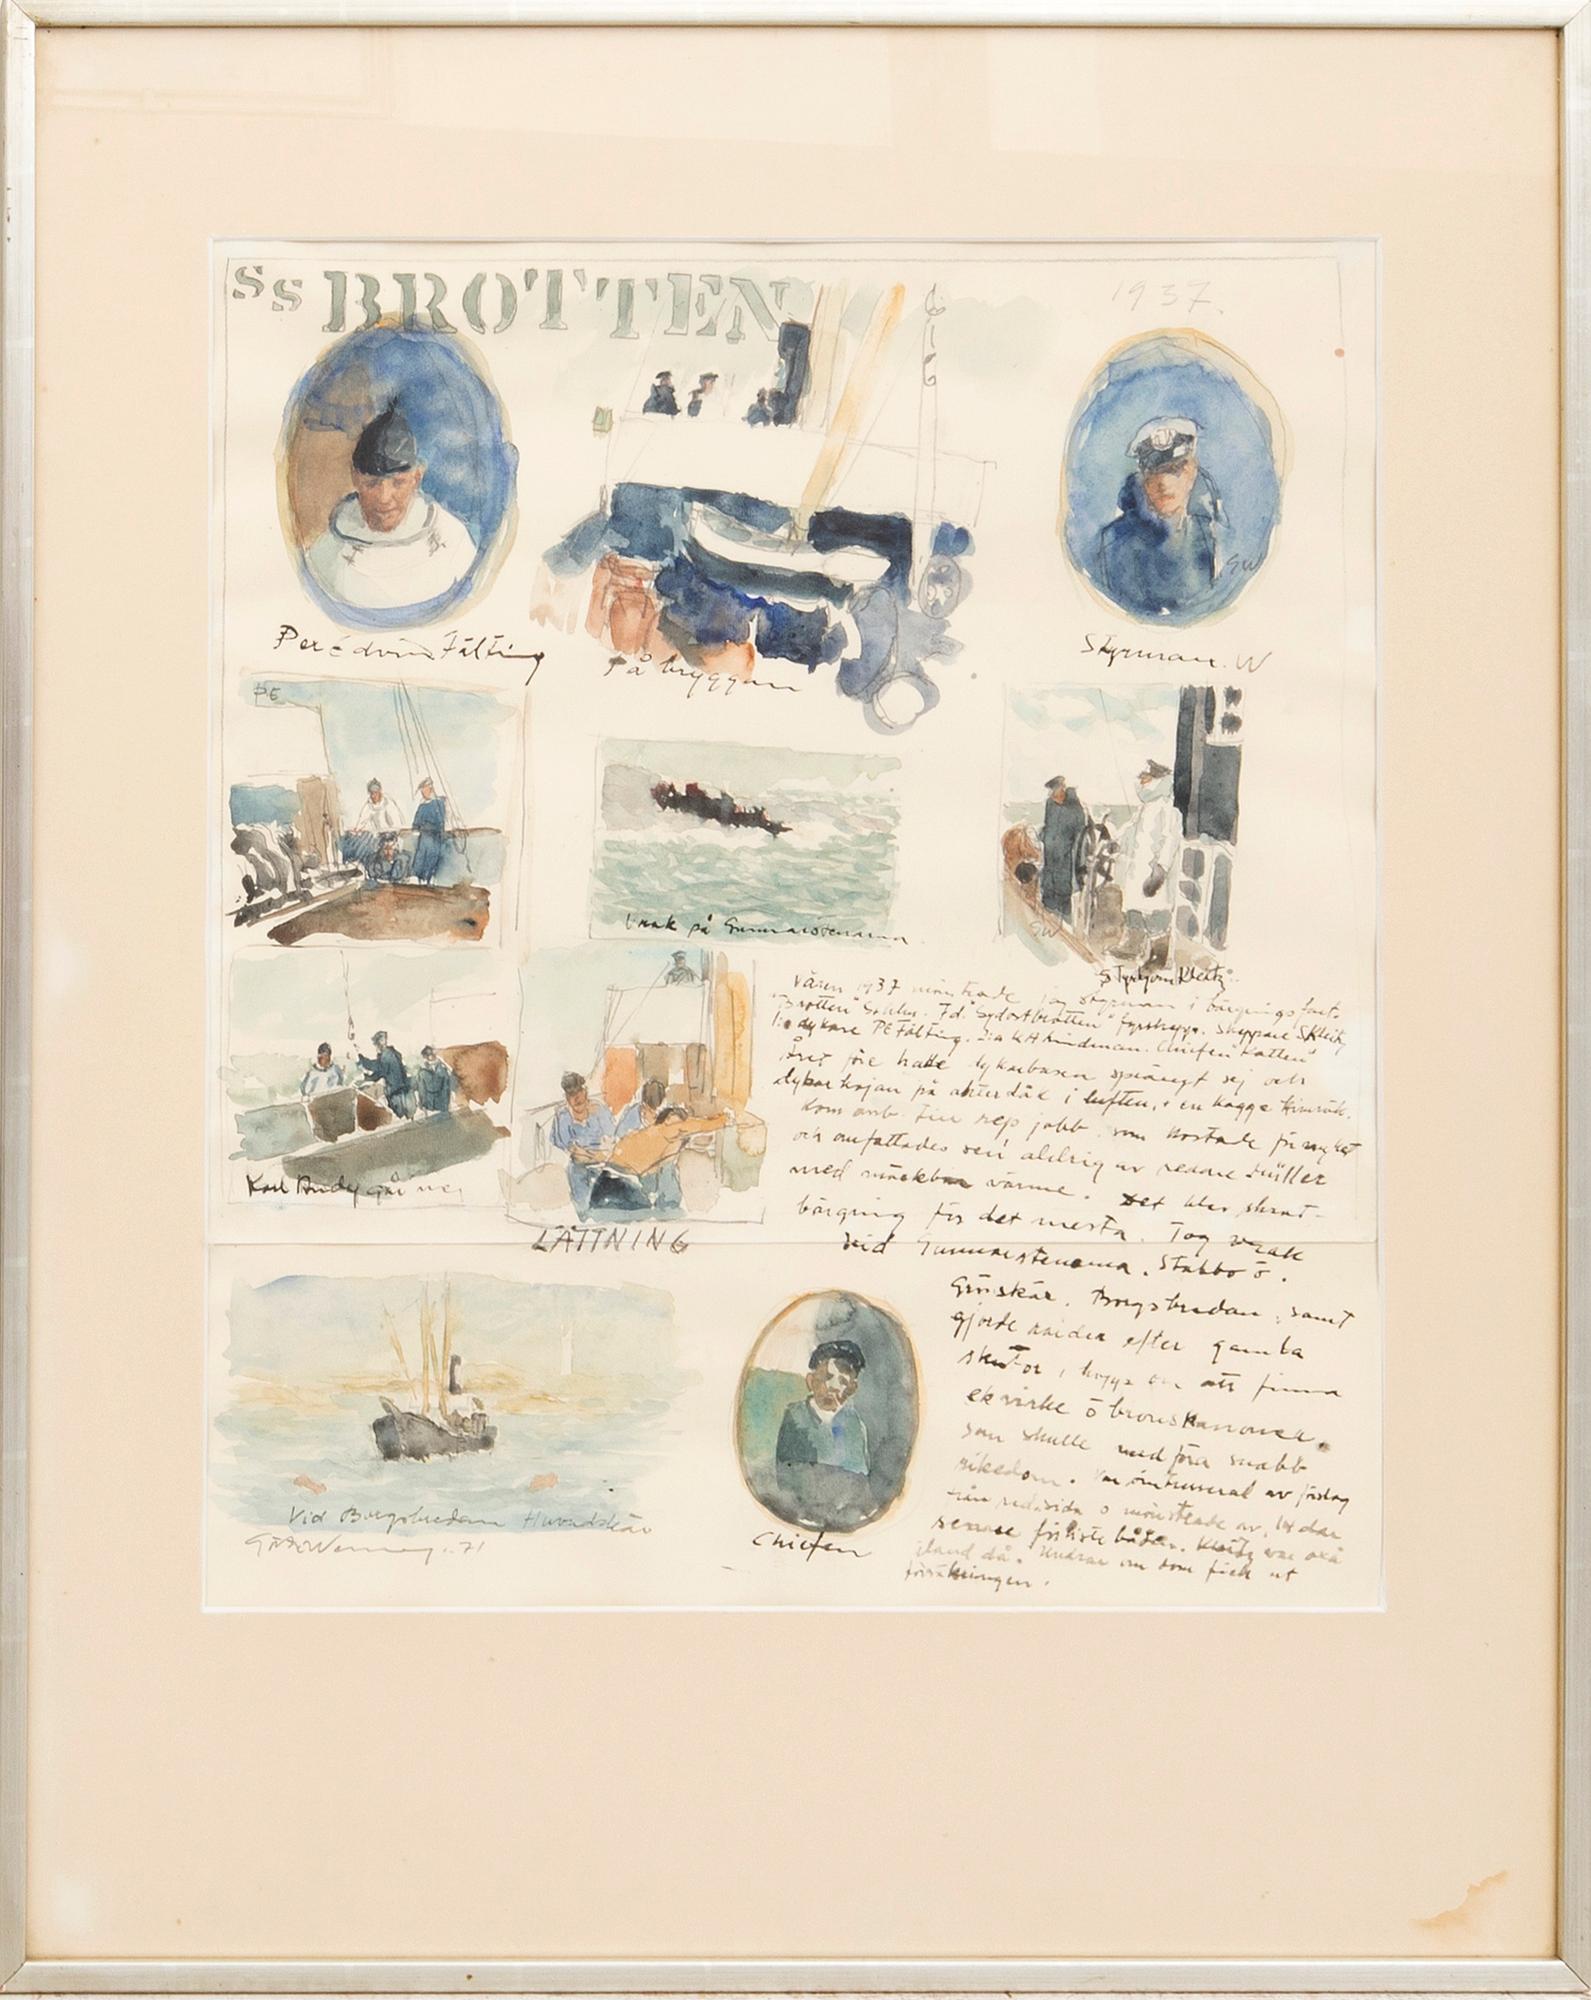 SS BROTTEN
1937.
Per Edvin Fälting
På bryggan
Styrman. W
GW
PE
Vrak på Gunnarstenarna
GW
Styrbjörn Kleitz
Karl Andy går ner
LÄTTNING
Våren 1937 mönstrade jag styrman i bärgningsfart.
"Brotten" Sthlm. Fd. "Sydostbrotten" fyrskepp. Skeppare SKleitz
dykare PE Fälting. KH Lindman. Chiefen "Katten"
Året före hade dykarbasen sprängt sej och
dykarkojan på akterdäk i luften, en kagge Kimrök.
Kom till rep jobb som kostade för mycket
och omfattades sen aldrig av redare Müller
med märkbar värme. Det blev skrot-
bärgning för det mesta. Tog vrak
vid Gunnarstenarna. Stabbo ö.
Grönskär. Borgsbredan, samt
gjorde raider efter gamla
skutor, i hopp om att finna
ekvirke o bronskanoner.
som skulle medföra snabb
rikedom. av förslag
från red.sida o mönstrade av.
senare förliste båten. Kleitz var oxå
iland då. Undrar om som fick ut
försäkringen.
Vid Borgsbredan Huvudskär
Gösta Werner.. 71
Chiefen